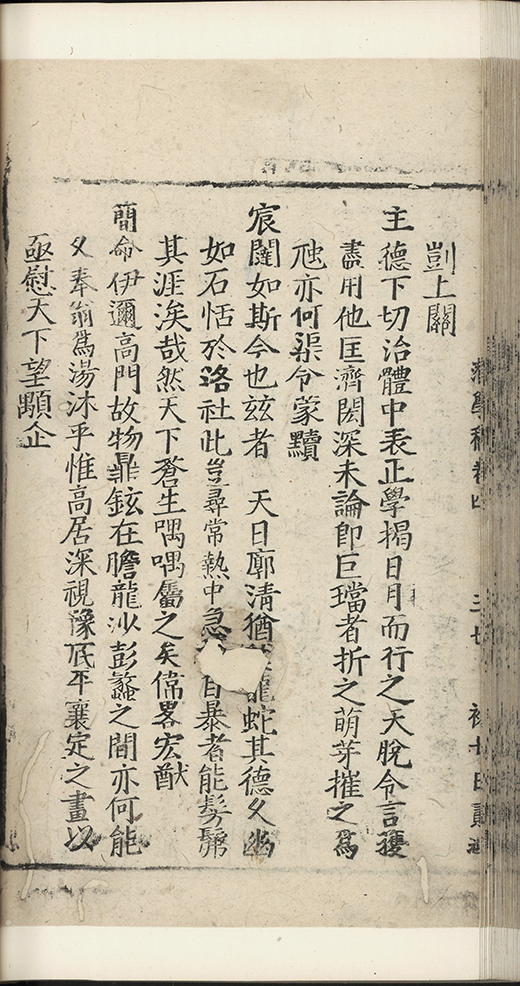 剴上關
主德下切治體中表正學揭日月而行之天脫令言獲
盡用他匡濟閎深未論即巨璫者折之萌芽摧之爲
虺亦何渠令蒙黷
宸闥如斯今也玆者 天日廓清猶 龍蛇其德乆幽
如石恬於洛社此豈尋常熱中急 自暴者能髣髴
其涯涘哉然天下蒼生喁喁屬之矣儻畧宏猷
簡命伊邇高門故物鼎鉉在膽龍沙彭蠡之間亦何能
乆奉翁爲湯沐乎惟高居深視豫底平襄定之畫以
亟慰天下望顒企